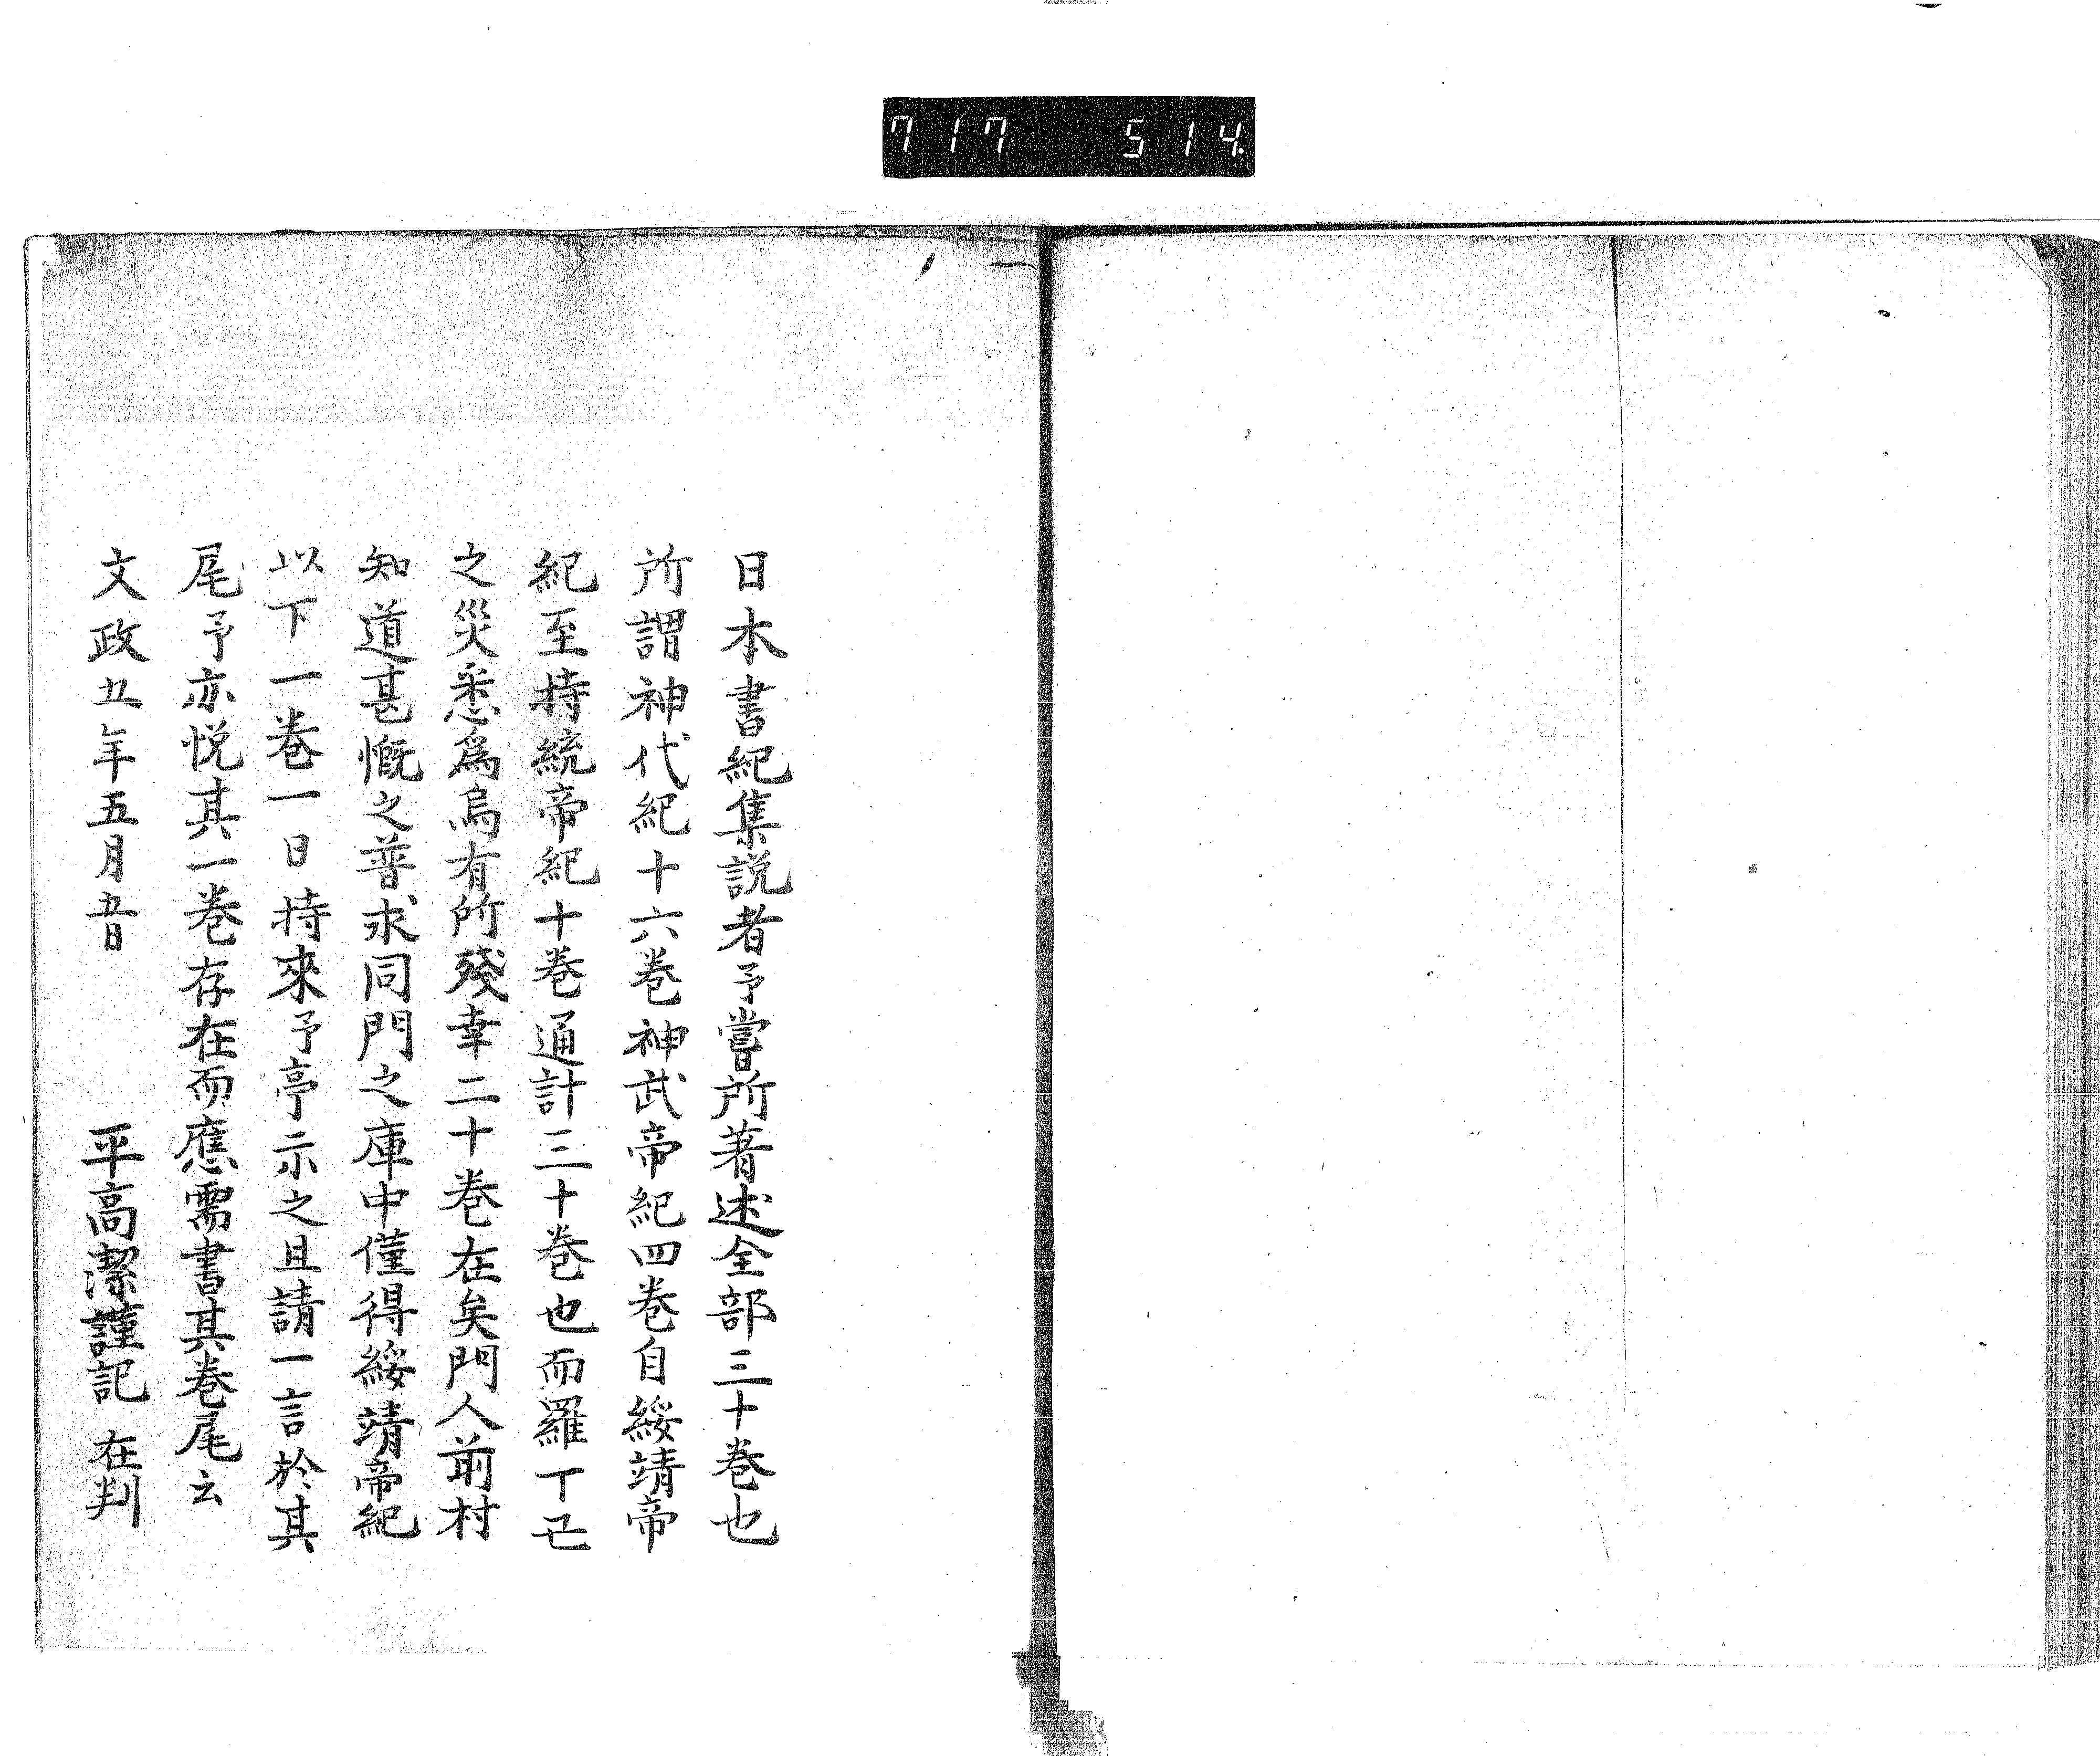 717 514
日本書紀集説者予嘗所著述全部三十巻也
所謂神代紀十六巻神武帝紀四巻自綏靖帝
紀至持統帝紀十巻通計三十巻也而羅丁丑
之災悉爲烏有所残幸二十巻在矣門人前村
知道甚慨之普求同門之庫中僅得綏靖帝紀
以下一巻一日持來予亭示之且請一言於其
尾予亦悦其一巻存在而應需書其巻尾云
文政五年五月五日　平高潔謹記　在判